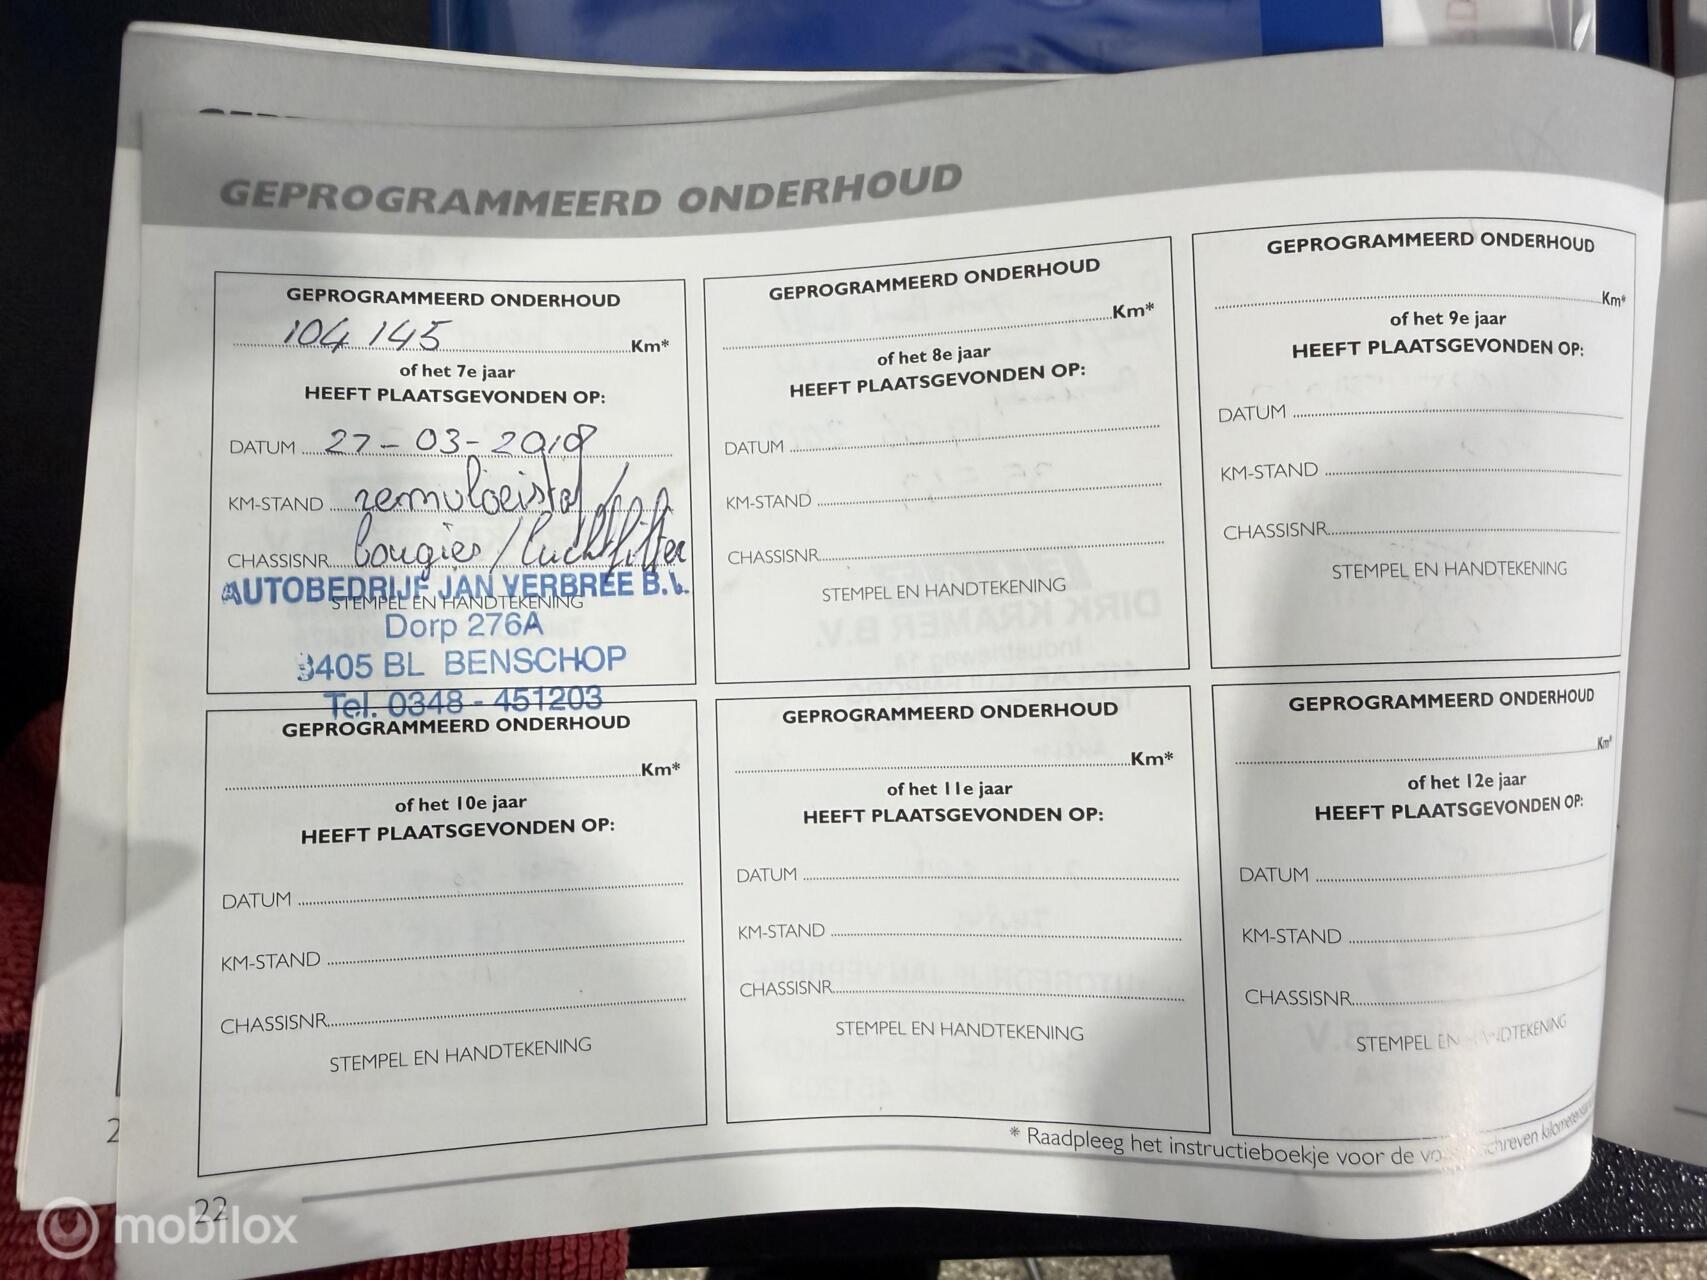 GEPROGRAMMEERD ONDERHOUD
GEPROGRAMMEERD ONDERHOUD
104 145 Km*
of het 7e jaar
HEEFT PLAATSGEVONDEN OP:
DATUM 27-03-2018
KM-STAND remvloeistof
CHASSISNR. bougies / luchtfilter
STEMPEL EN HANDTEKENING
AUTOBEDRIJF JAN VERBREE B.V.
Dorp 276A
3405 BL BENSCHOP
Tel. 0348 - 451203
GEPROGRAMMEERD ONDERHOUD
Km*
of het 8e jaar
HEEFT PLAATSGEVONDEN OP:
DATUM
KM-STAND
CHASSISNR.
STEMPEL EN HANDTEKENING
GEPROGRAMMEERD ONDERHOUD
Km*
of het 9e jaar
HEEFT PLAATSGEVONDEN OP:
DATUM
KM-STAND
CHASSISNR.
STEMPEL EN HANDTEKENING
GEPROGRAMMEERD ONDERHOUD
Km*
of het 10e jaar
HEEFT PLAATSGEVONDEN OP:
DATUM
KM-STAND
CHASSISNR.
STEMPEL EN HANDTEKENING
GEPROGRAMMEERD ONDERHOUD
Km*
of het 11e jaar
HEEFT PLAATSGEVONDEN OP:
DATUM
KM-STAND
CHASSISNR.
STEMPEL EN HANDTEKENING
GEPROGRAMMEERD ONDERHOUD
Km*
of het 12e jaar
HEEFT PLAATSGEVONDEN OP:
DATUM
KM-STAND
CHASSISNR.
STEMPEL EN HANDTEKENING
* Raadpleeg het instructieboekje voor de
22
mobilox